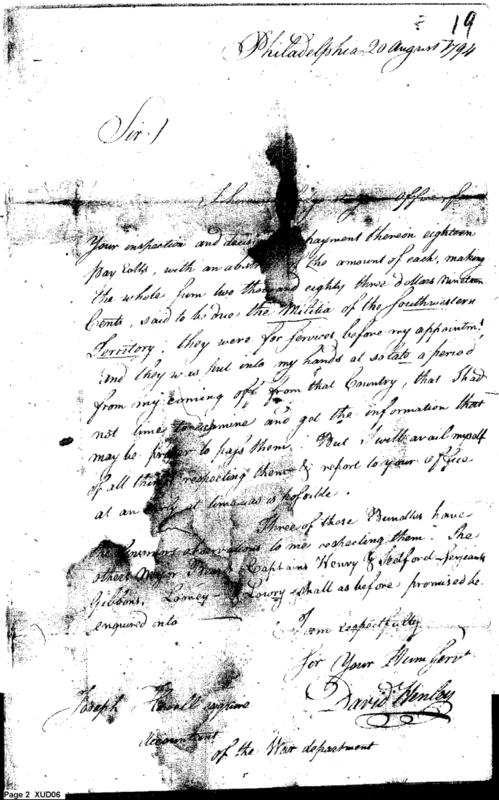 19
Philadelphia 20 August 1794
Sir /
I have
Your inspection and payment thereon eighteen
pay rolls, with an the amount of each, making
the whole sum two thousand eighty three dollars nineteen
Cents, said to be due the Militia of the Southwestern
Territory, they were for Services before my appointm!
and they was put into my hands at so late a period
from my coming off from that Country, that I had
not time to examine and get the information that
may be proper to pass them. But I will avail myself
of all respecting them & report to your office
at an time as is possible.
Three of these Bundles have
observations to me respecting them. The
Captains Henry & Tedford - Sergeants
Gibbons, Lowry shall as before promised be
enquired into
I am respectfully
Sir Your Hum Servt
David Henley
Joseph Howell esquire
Accountant
of the War department
Page 2 XUD06